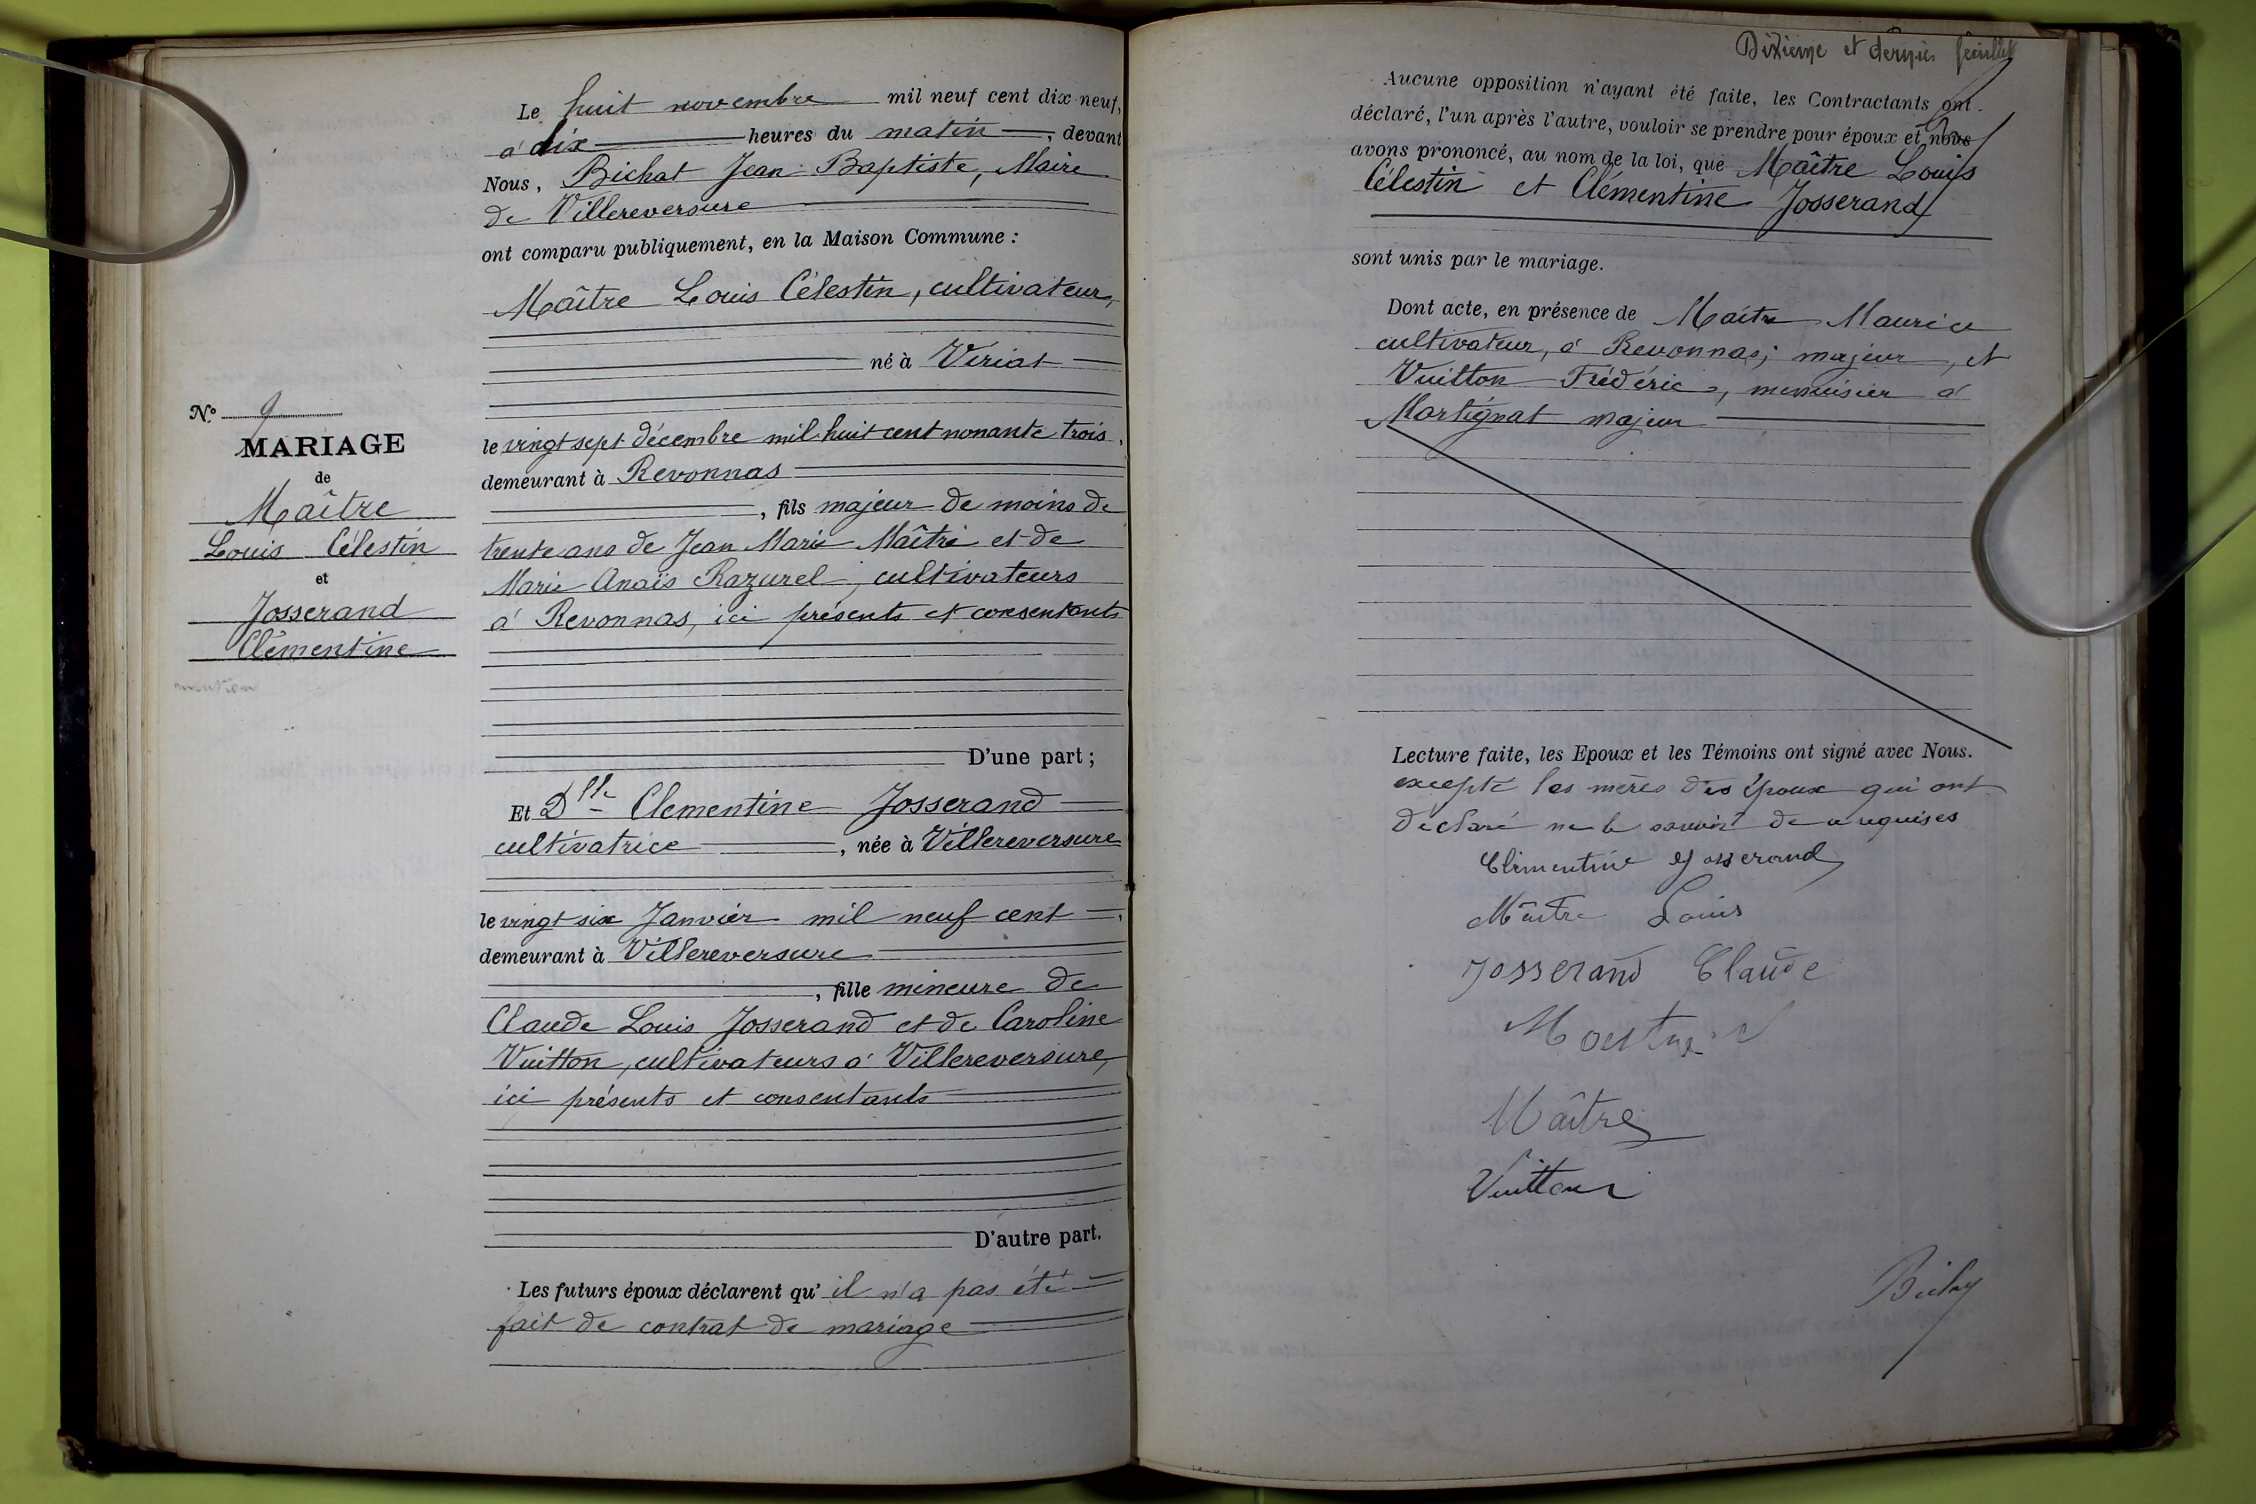 Le huit novembre mil neuf cent dix-neuf,
à dix heures du matin, devant
Nous, Bichat Jean-Baptiste, Maire
de Villereversure
ont comparu publiquement, en la Maison Commune :
Maître Louis Célestin, cultivateur,
né à Viriat
le vingt sept décembre mil huit cent nonante trois,
demeurant à Revonnas
, fils majeur de moins de
trente ans de Jean Marie Maître et de
Marie Anaïs Razurel, cultivateurs
à Revonnas, ici présents et consentants
D'une part ;
Et Dlle Clementine Josserand
cultivatrice, née à Villereversure
le vingt six Janvier mil neuf cent,
demeurant à Villereversure
, fille mineure de
Claude Louis Josserand et de Caroline
Vuitton, cultivateurs à Villereversure,
ici présents et consentants
D'autre part.
Les futurs époux déclarent qu'il n'a pas été
fait de contrat de mariage
N° 9
MARIAGE
de
Maître
Louis Célestin
et
Josserand
Clémentine
Dixième et dernier feuillet
Aucune opposition n'ayant été faite, les Contractants ont
déclaré, l'un après l'autre, vouloir se prendre pour époux et nous
avons prononcé, au nom de la loi, que Maître Louis
Célestin et Clémentine Josserand
sont unis par le mariage.
Dont acte, en présence de Maître Maurice
cultivateur, à Revonnas; majeur, et
Vuitton Frédéric, menuisier à
Martignat majeur
Lecture faite, les Epoux et les Témoins ont signé avec Nous.
excepté les mères des époux qui ont
déclaré ne le savoir de ce requises
Clémentine Josserand
Maître Louis
Josserand Claude
Maître
Vuitton